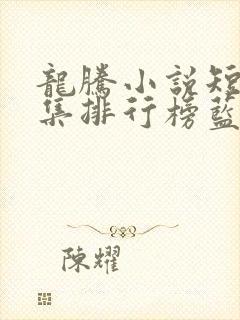 龍騰小說短
集排行榜藍
陳耀